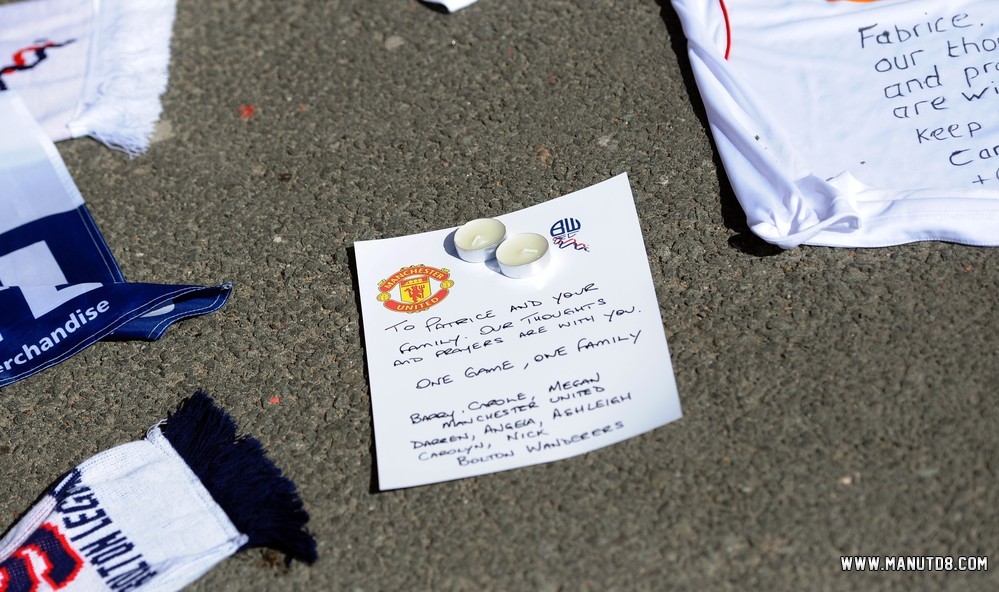 Fabrice.
our
and
are
Keep
MANCHESTER
UNITED
TO PATRICE AND YOUR
FAMILY. OUR THOUGHTS
AND PRAYERS ARE WITH YOU.
ONE GAME, ONE FAMILY
BARRY, CAROLE, MEGAN
MANCHESTER UNITED
DARREN, ANGELA, ASHLEIGH
CAROLYN, NICK
BOLTON WANDERERS
erchandise
BOLTON
WWW.MANUTD8.COM